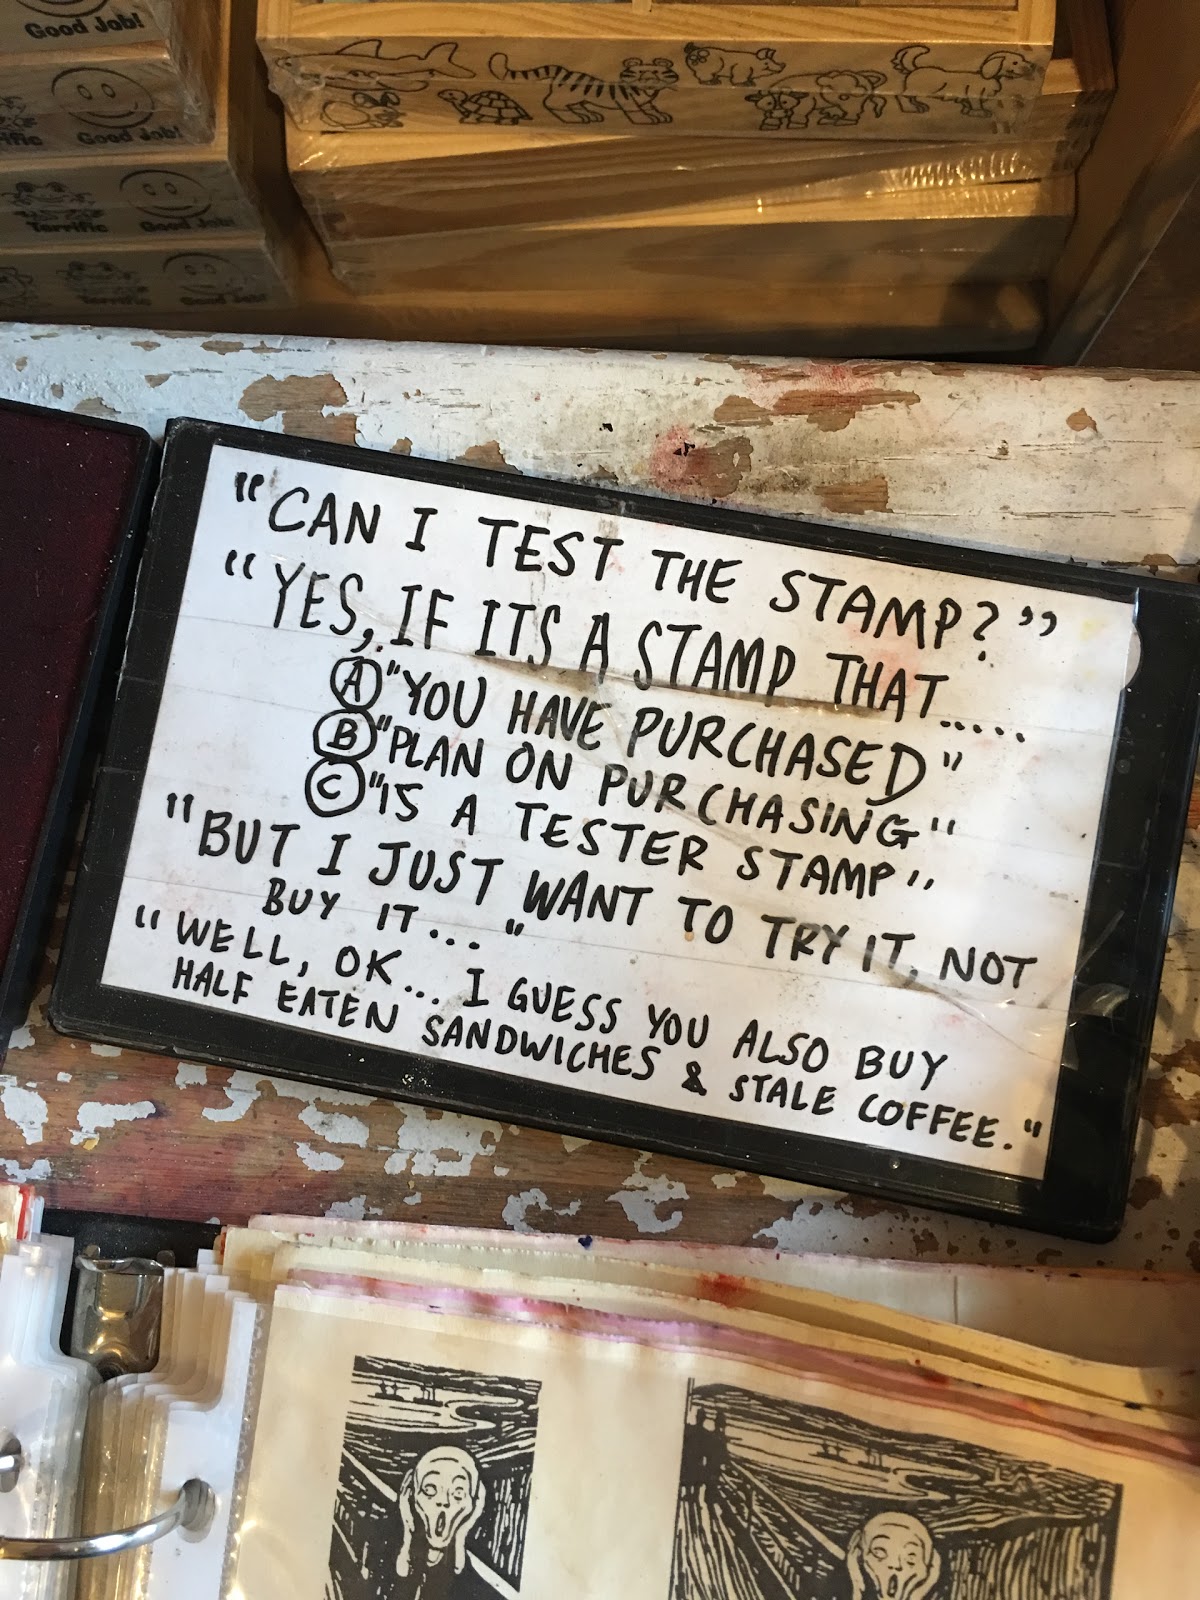 Good Job!
Good Job!
Terrific
Good Job!
Terrific
Good Job!
"CAN I TEST THE STAMP?"
"YES, IF ITS A STAMP THAT.....
Ⓐ "YOU HAVE PURCHASED"
Ⓑ "PLAN ON PURCHASING"
Ⓒ "IS A TESTER STAMP"
"BUT I JUST WANT TO TRY IT, NOT
BUY IT..."
"WELL, OK... I GUESS YOU ALSO BUY
HALF EATEN SANDWICHES & STALE COFFEE."